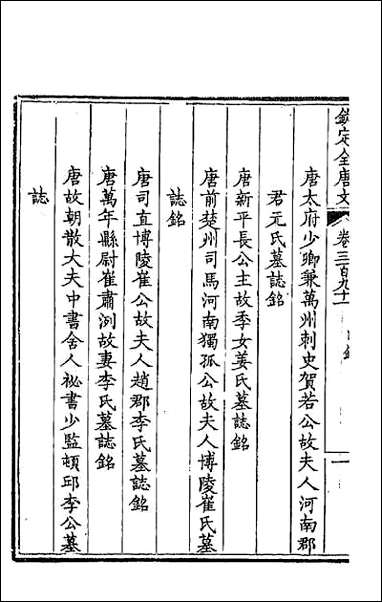 欽定全唐文 卷三百九十一 目錄 一
唐太府少卿兼萬州刺史賀若公故夫人河南郡
君元氏墓誌銘
唐新平長公主故季女姜氏墓誌銘
唐前楚州司馬河南獨孤公故夫人博陵崔氏墓
誌銘
唐司直博陵崔公故夫人趙郡李氏墓誌銘
唐萬年縣尉崔肅洌故妻李氏墓誌銘
唐故朝散大夫中書舍人祕書少監頓邱李公墓
誌